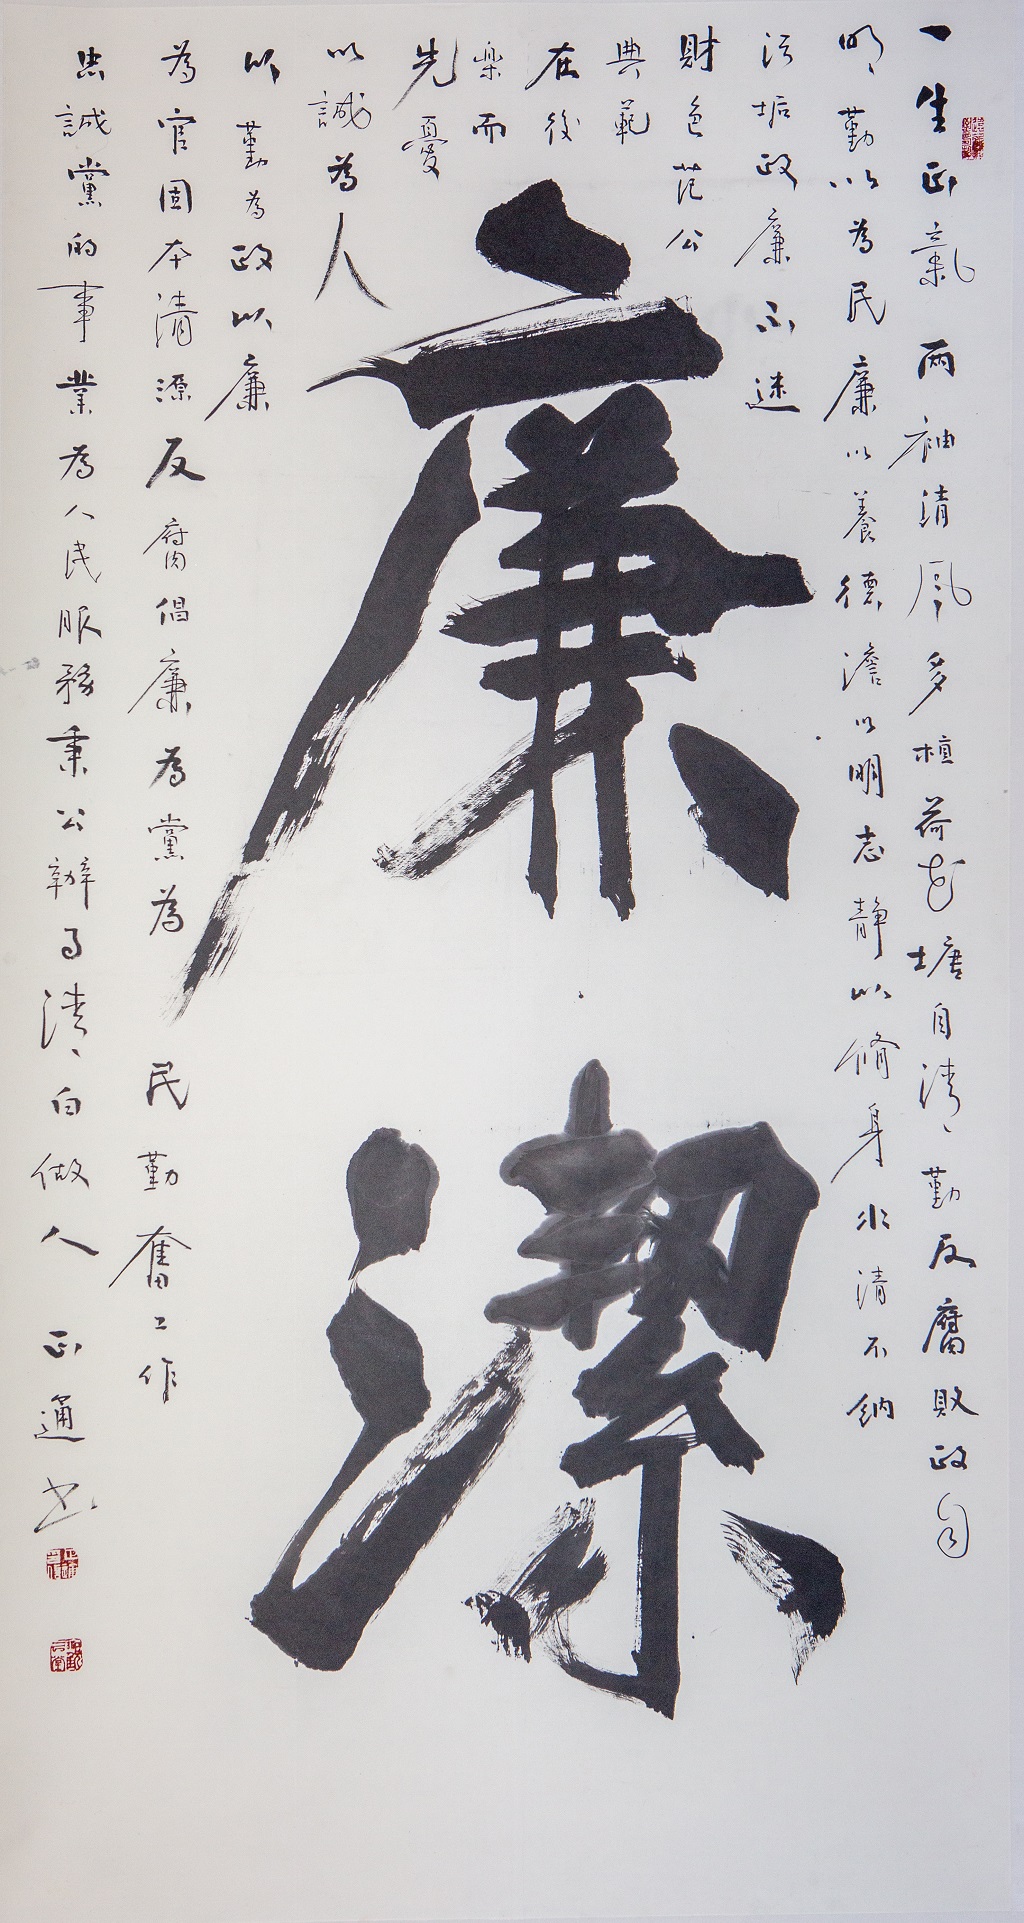 一生正氣兩袖清風多植荷花塘自清、勤反腐敗政自
明、勤以為民廉以養德澹以明志靜以脩身水清不納
污垢政廉不迷
財色范公
典範
在後
樂而
先憂
廉潔
以誠為人
以勤為政以廉
為官固本清源反腐倡廉為黨為民勤奮工作
忠誠黨的事業為人民服務秉公辦事清、白做人正通书